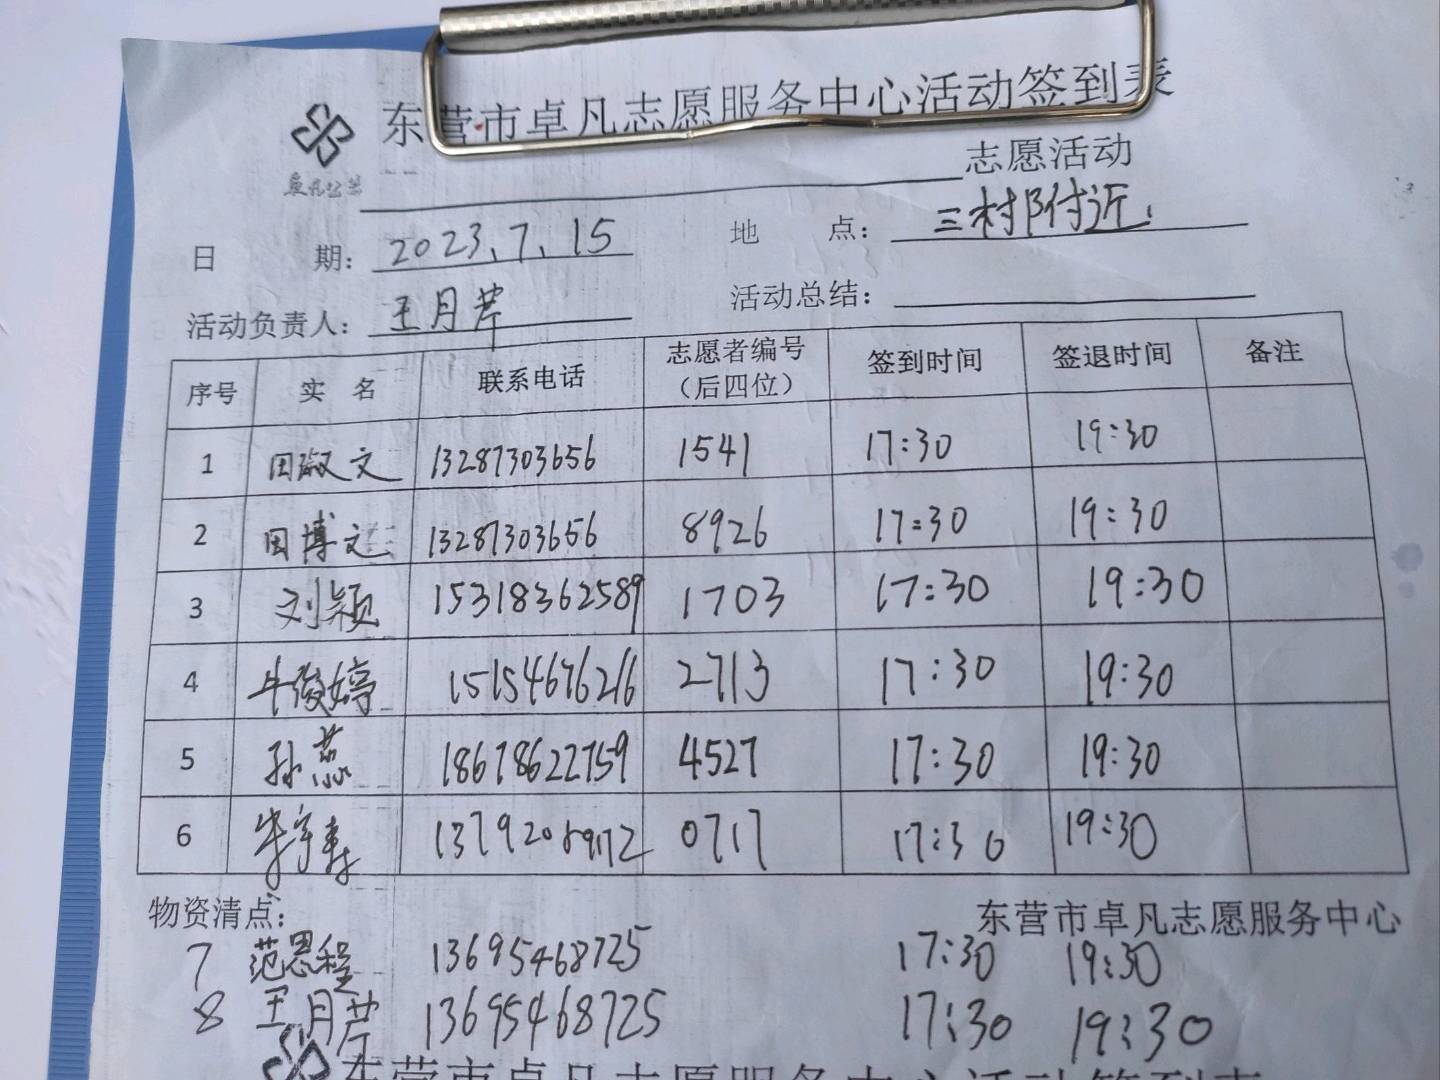 东营市卓凡志愿服务中心活动签到表
卓凡公益
志愿活动
日 期： 2023、7、15 地 点： 三村附近
活动负责人： 王月芹 活动总结：
序号 实 名 联系电话 志愿者编号（后四位） 签到时间 签退时间 备注
1 田淑文 13287303656 1541 17:30 19:30
2 田博文 13287303656 8926 17:30 19:30
3 刘颖 15318362589 1703 17:30 19:30
4 牛俊婷 15154676216 2713 17:30 19:30
5 孙蕊 18678622759 4527 17:30 19:30
6 13792089172 0717 17:30 19:30
物资清点： 东营市卓凡志愿服务中心
7 范恩程 13695468725 17:30 19:30
8 王月芹 13695468725 17:30 19:30
东营市卓凡志愿服务中心活动签到表